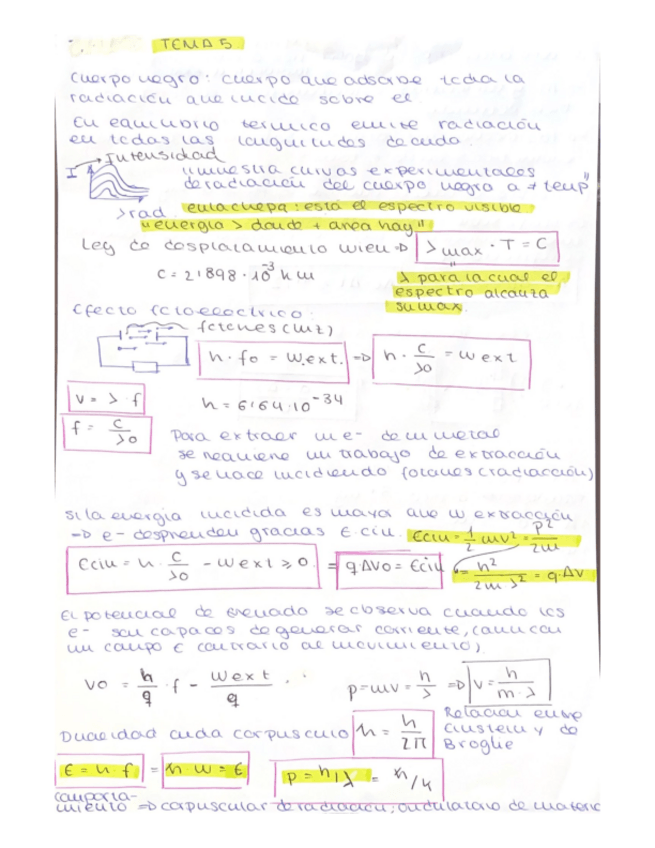 TEMA 5
Cuerpo negro: cuerpo que adsorbe toda la
radiación que incide sobre el.
En equilibrio termico emite radiación
en todas las longuitudes de onda.
I → Intensidad
"muestra curvas experimentales
de radiación del cuerpo negro a ≠ temp"
>rad. en la chepa: está el espectro visible
"energía > donde + area hay"
Ley de desplazamiento Wien ⇒ λmax · T = C
C = 2'898 · 10⁻³ K m
λ para la cual el
espectro alcanza
su max.
Efecto fotoeléctrico:
fotones (luz)
h · f0 = W ext. ⇒ h · c/λ0 = W ext
v = λ · f
h = 6'64 · 10⁻³⁴
f = c/λ0
Para extraer un e- de un metal
se requiere un trabajo de extracción
y se hace incidiendo fotones (radiacción)
Si la energía incidida es mayor que W extracción
⇒ e- desprenden gracias E cin. Ecin = 1/2 mv² = p²/2m
Ecin = h · c/λ0 - W ext ≥ 0 = q·ΔV0 = Ecin = h²/2m·λ² = q·ΔV
El potencial de frenado se observa cuando los
e- son capaces de generar corriente, (aun con
un campo E contrario al movimiento)
V0 = h/q · f - Wext/q
p = mv = h/λ ⇒ v = h/m·λ
Dualidad onda corpusculo ħ = h/2π
Relación entre
Einstein y de
Broglie
E = h f = ħ w = E
p = h/λ = ħ/
comporta-
miento ⇒ corpuscular de radiacion; ondulatorio de materia